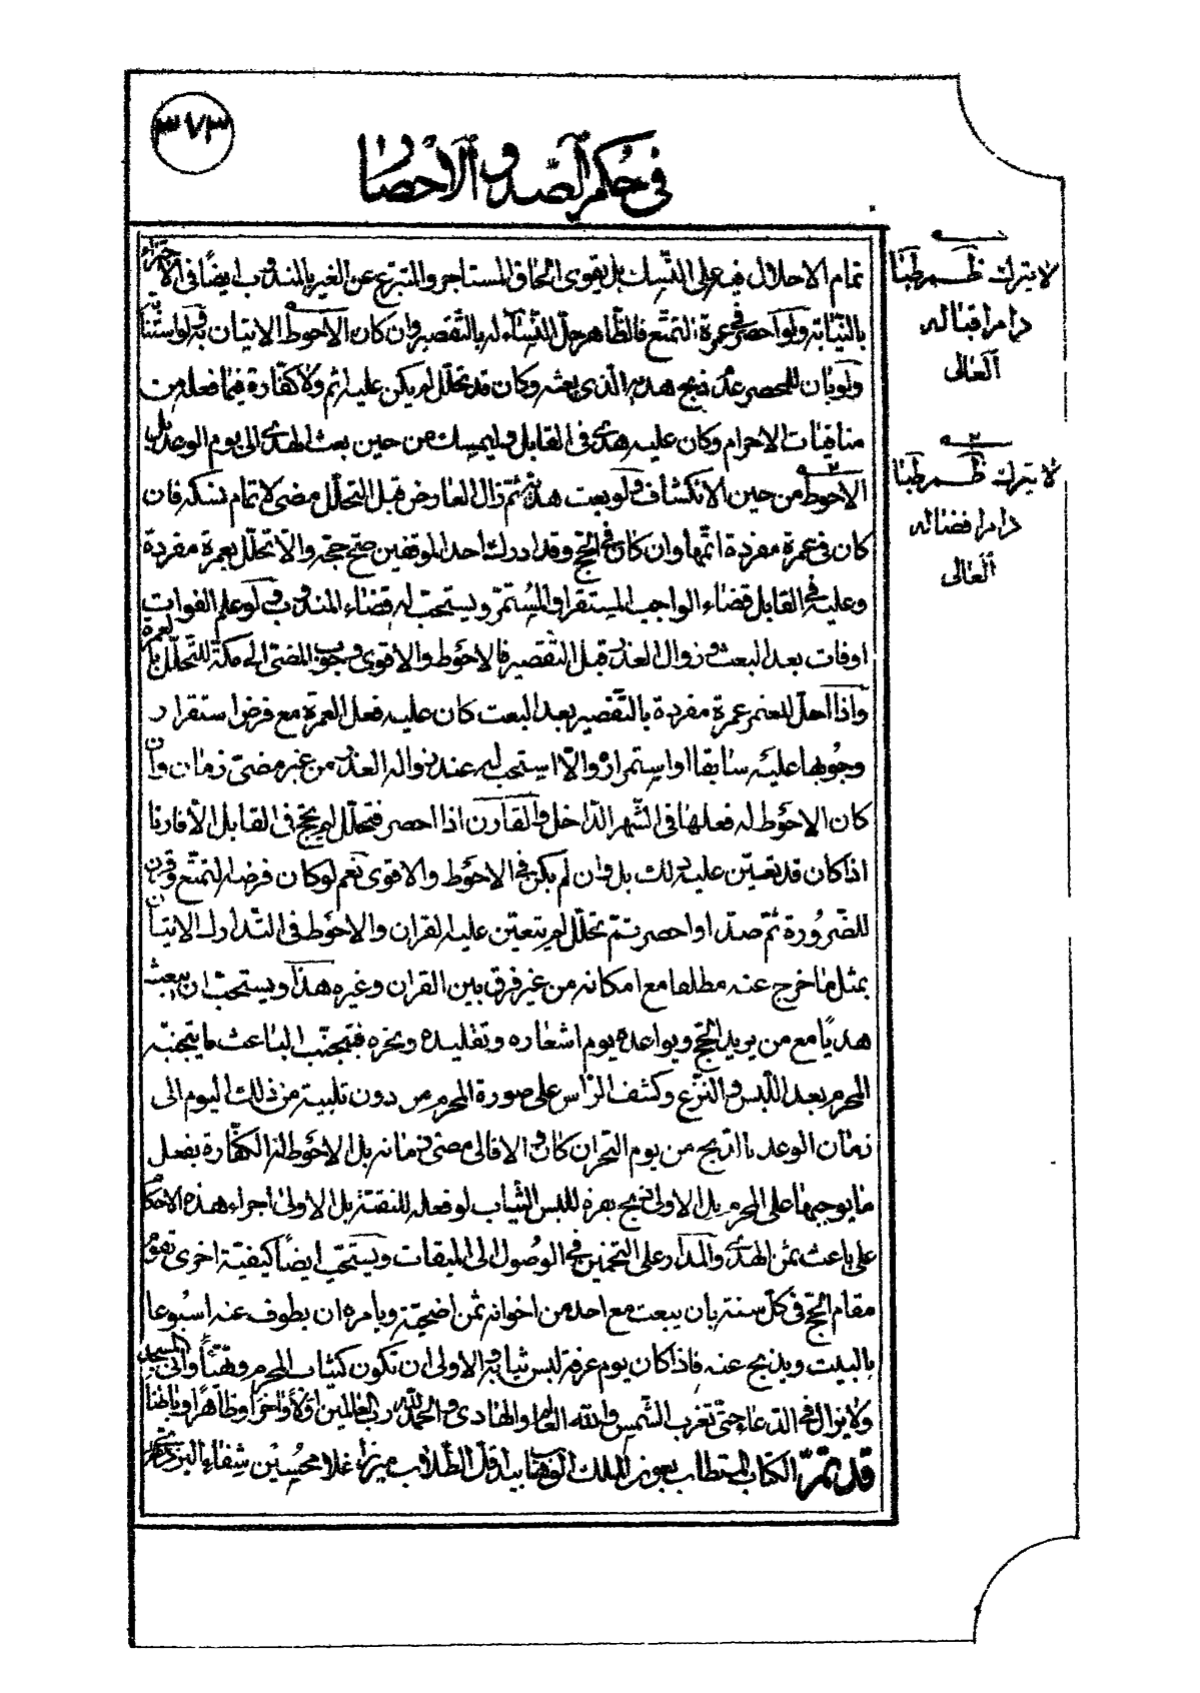 ٣٧٣
في حكم الصد والاحصار
تمام الاحلال فيه على النسك بل يقوى الحاق المستاجر والمتبرع عن الغير بالمندوب ايضًا في الاجتزاء
بالنيابة ولو احصر في عمرة التمتع فالظاهر حل النساء له بالتقصير وان كان الاحوط الاتيان به ولو استنابة
ولو بان للمحصر عدم ذبح هديه الذي بعثه وكان قد تحلل لم يكن عليه اثم ولا كفارة فيما فعله من
منافيات الاحرام وكان عليه هدى في القابل وليمسك من حين بعث الهدى الى يوم الوعد بل
الاحوط من حين الانكشاف ولو بعث هديه ثم زال العارض قبل التحلل مضى لاتمام نسكه فان
كان في عمرة مفردة اتمها وان كان في الحج وقد ادرك احد الموقفين صح حجه والا تحلل بعمرة مفردة
وعليه في القابل قضاء الواجب المستقر او المستمر ويستحب له قضاء المندوب ولو علم الفوات
او فات بعد البعث وزوال العذر قبل التقصير فالاحوط والاقوى وجوب المضى الى مكة للتحلل بالعمرة
واذا احل المعتمر عمرة مفردة بالتقصير بعد البعث كان عليه فعل العمرة مع فرض استقرار
وجوبها عليه سابقا او استمراره والا استحب له عند زوال العذر من غير مضى زمان وان
كان الاحوط له فعلها في الشهر الداخل والقارن اذا احصر فتحلل لم يحج في القابل الا قارنا
اذا كان قد تعين عليه ذلك بل وان لم يكن في الاحوط والاقوى نعم لو كان فرضه التمتع وقرن
للضرورة ثم صد او احصر ثم تحلل لم يتعين عليه القران والاحوط في التدارك الاتيان
بمثل ما خرج عنه مطلقا مع امكانه من غير فرق بين القران وغيره هذا ويستحب ان يبعث
هديًا مع من يريد الحج ويواعده يوم اشعاره وتقليده ونحره فيجتنب الباعث ما يجتنبه
المحرم بعد اللبس والنزع وكشف الراس على صورة المحرم من دون تلبية من ذلك اليوم الى
زمان الوعد بالذبح من يوم النحر ان كان والا فالى مضى زمانه بل الاحوط له الكفارة بفعل
ما يوجبها على المحرم بل الاولى ذبح بقرة للبس الثياب لو فعله للتقية بل الاولى اجراء هذه الاحكام
على باعث ثمن الهدى والمدار على التخمين في الوصول الى الميقات ويستحب ايضًا كيفية اخرى تقوم
مقام الحج في كل سنة بان يبعث مع احد من اخوانه ثمن اضحيته ويامره ان يطوف عنه اسبوعا
بالبيت ويذبح عنه فاذا كان يوم عرفة لبس ثيابه والاولى ان تكون كثياب المحرم وتهيأ واتى المسجد
ولا يزال في الدعاء حتى تغرب الشمس والله العالم والهادى والحمد لله رب العالمين اولا واخرا وظاهرًا وباطنا
قد تمّ الكتاب المستطاب بعون الملك الوهاب بيد اقل الطلاب ميرزا غلامحسين
لا يترك ظـم طبا
دام اقباله
العالى
٢
لا يترك ظـم طبا
دام افضاله
العالى